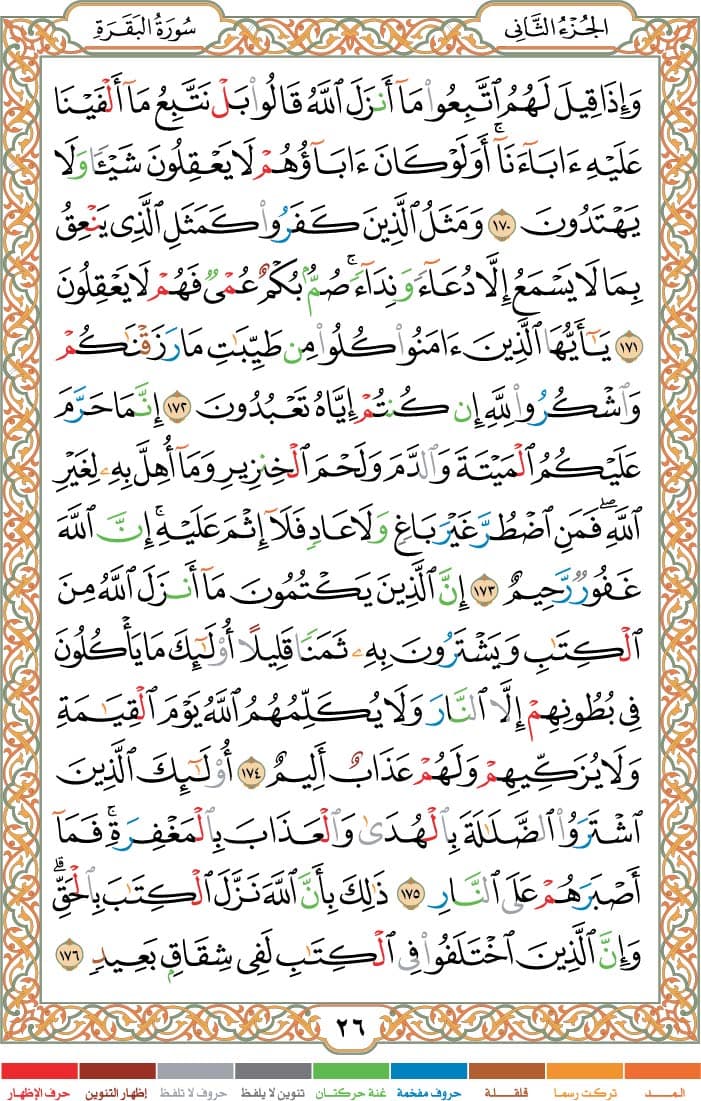 الجُزْءُ الثَّانِي
سُورَةُ البَقَرَةِ
وَإِذَا قِيلَ لَهُمُ ٱتَّبِعُوا۟ مَآ أَنزَلَ ٱللَّهُ قَالُوا۟ بَلْ نَتَّبِعُ مَآ أَلْفَيْنَا
عَلَيْهِ ءَابَآءَنَآ ۚ أَوَلَوْ كَانَ ءَابَآؤُهُمْ لَا يَعْقِلُونَ شَيْـًٔا وَلَا
يَهْتَدُونَ ١٧٠ وَمَثَلُ ٱلَّذِينَ كَفَرُوا۟ كَمَثَلِ ٱلَّذِى يَنْعِقُ
بِمَا لَا يَسْمَعُ إِلَّا دُعَآءً وَنِدَآءً ۚ صُمٌّۢ بُكْمٌ عُمْىٌ فَهُمْ لَا يَعْقِلُونَ
١٧١ يَـٰٓأَيُّهَا ٱلَّذِينَ ءَامَنُوا۟ كُلُوا۟ مِن طَيِّبَـٰتِ مَا رَزَقْنَـٰكُمْ
وَٱشْكُرُوا۟ لِلَّهِ إِن كُنتُمْ إِيَّاهُ تَعْبُدُونَ ١٧٢ إِنَّمَا حَرَّمَ
عَلَيْكُمُ ٱلْمَيْتَةَ وَٱلدَّمَ وَلَحْمَ ٱلْخِنزِيرِ وَمَآ أُهِلَّ بِهِۦ لِغَيْرِ
ٱللَّهِ ۖ فَمَنِ ٱضْطُرَّ غَيْرَ بَاغٍ وَلَا عَادٍ فَلَآ إِثْمَ عَلَيْهِ ۚ إِنَّ ٱللَّهَ
غَفُورٌ رَّحِيمٌ ١٧٣ إِنَّ ٱلَّذِينَ يَكْتُمُونَ مَآ أَنزَلَ ٱللَّهُ مِنَ
ٱلْكِتَـٰبِ وَيَشْتَرُونَ بِهِۦ ثَمَنًا قَلِيلًا أُو۟لَـٰٓئِكَ مَا يَأْكُلُونَ
فِى بُطُونِهِمْ إِلَّا ٱلنَّارَ وَلَا يُكَلِّمُهُمُ ٱللَّهُ يَوْمَ ٱلْقِيَـٰمَةِ
وَلَا يُزَكِّيهِمْ وَلَهُمْ عَذَابٌ أَلِيمٌ ١٧٤ أُو۟لَـٰٓئِكَ ٱلَّذِينَ
ٱشْتَرَوُا۟ ٱلضَّلَـٰلَةَ بِٱلْهُدَىٰ وَٱلْعَذَابَ بِٱلْمَغْفِرَةِ ۚ فَمَآ
أَصْبَرَهُمْ عَلَى ٱلنَّارِ ١٧٥ ذَٰلِكَ بِأَنَّ ٱللَّهَ نَزَّلَ ٱلْكِتَـٰبَ بِٱلْحَقِّ ۗ
وَإِنَّ ٱلَّذِينَ ٱخْتَلَفُوا۟ فِى ٱلْكِتَـٰبِ لَفِى شِقَاقٍۭ بَعِيدٍ ١٧٦
٢٦
المـــد تركت رسما قلقـلـة حروف مفخمة غنة حركتان تنوين لا يلفظ حروف لا تلفظ إظهار التنوين حرف الإظهار